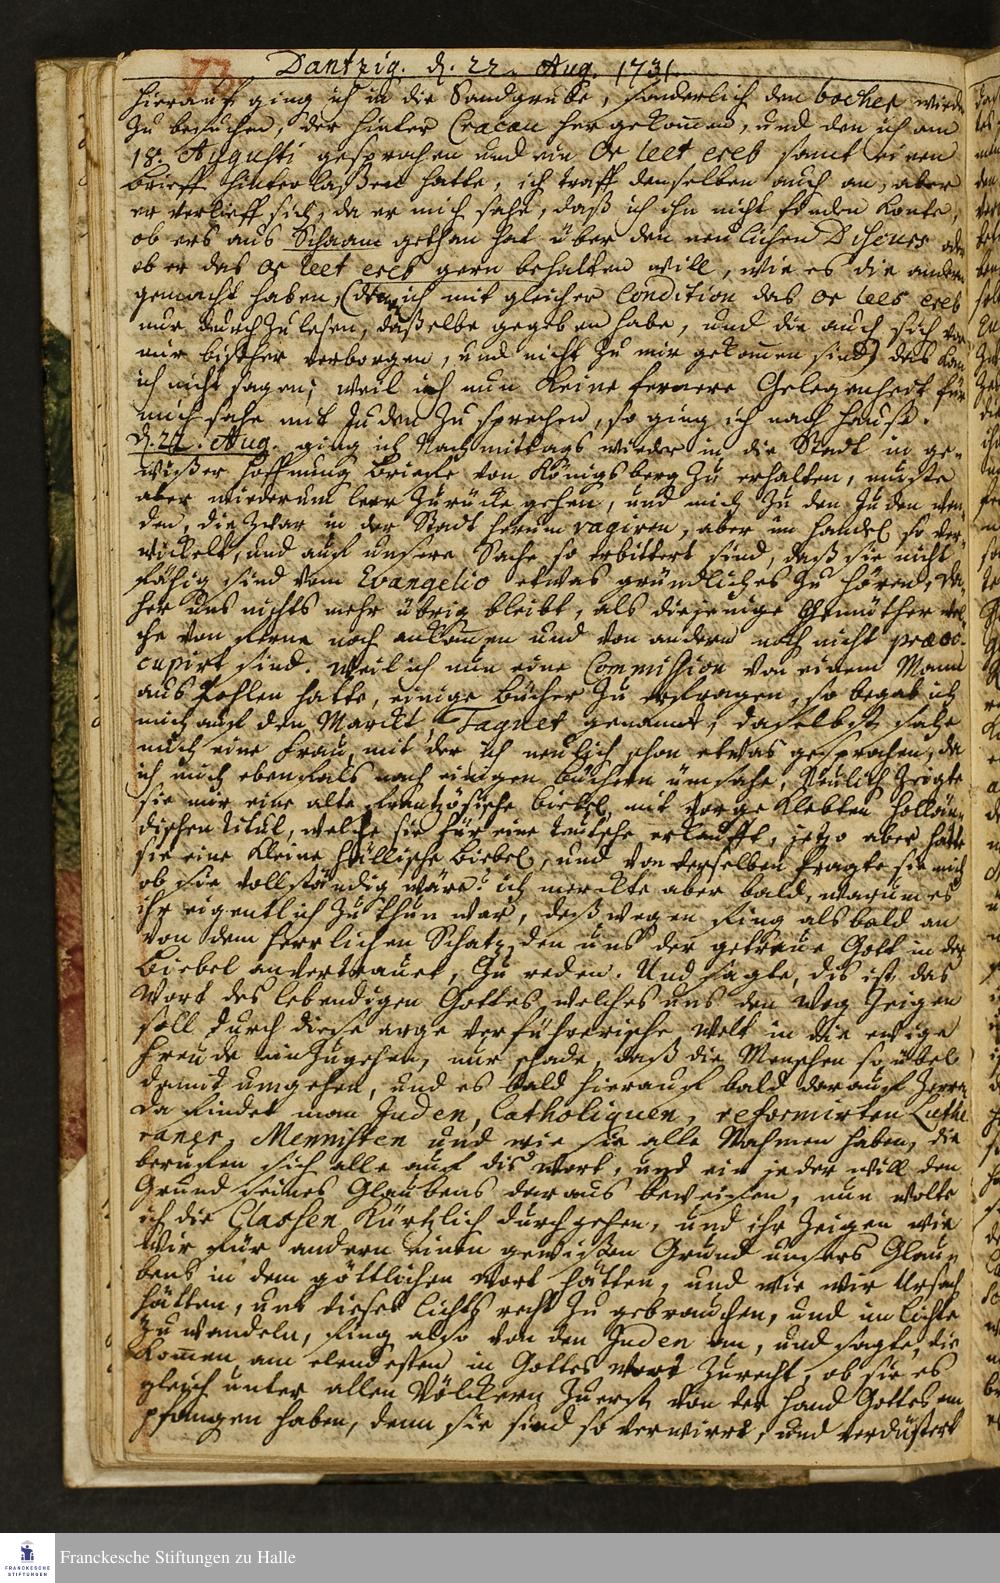 73.
Dantzig. d. 22. Aug. 1731.
hierauf ging ich in die Sandgrube, sonderlich den bocher wieder
zu besuchen, der hinter Cracau hergekom̅en, und den ich am
18. Augusti gesprochen und ein Or leet ereb samt einen
Brieff hinterlaßen hatte, ich traff denselben auch an, aber
er verlieff sich, da er mich sahe, daß ich ihn nicht finden konte,
ob ers aus Schaam gethan hat über den neulichen Discurs oder
ob er das Or leet ereb gern behalten will, wie es die andern
gemacht haben, (denen ich mit gleicher Condition das Or leet ereb
nur durchzulesen, daßelbe gegeben habe, und die auch sich vor
mir bisher verborgen, und nicht zu mir gekom̅en sind) das kan
ich nicht sagen; weil ich nun keine fernere Gelegenheit für
mich sahe mit Juden zu sprechen, so ging ich nach Hauß.
d. 22. Aug. ging ich Nachmittags wieder in die Stadt in ge-
wißer Hoffnung Brieffe von Königsberg zu erhalten, muste
aber wiederum leer zurücke gehen, und mich zu den Juden wen
den, die zwar in der Stadt herum vagiren, aber im Handel so ver-
wickelt, und auf unsere Sache so erbittert sind, daß sie nicht
fähig sind vom Evangelio etwas gründliches zu hören, da
her uns nichts mehr übrig bleibt, als diejenige Gemüther wel
che von ferne noch ankom̅en und von andern noch nicht præoc-
cupirt sind. Weil ich nun eine Commission von einem Mann
aus Pohlen hatte, einige Bücher zu erfragen, so begab ich
mich auf den Marckt Tagnet genannt, daselbst sahe
mich eine Frau, mit der ich neulich schon etwas gesprochen, da
ich mich ebenfals nach einigen Büchern umsahe, Neulich zeigte
sie mir eine alte frantzösische Biebel, mit vorgeklebten hollän-
dischen titul, welche sie für eine teutsche erkaufft, jetzo aber hatte
sie eine kleine hällische Biebel, und von derselben fragte sie mich
ob sie vollständig wäre? ich merckte aber bald, warum es
ihr eigentlich zu thun war, deßwegen fing alsbald an
von dem herrlichen Schatz, den uns der getreue Gott in der
Biebel anvertrauet, zu reden. Und sagte, dis ist das
Wort des lebendigen Gottes, welches uns den Weg zeigen
soll durch diese arge verführerische Welt in die ewige
Freude einzugehen, nur schade, daß die Menschen so übel
damit umgehen, und es bald hierauf bald darauf zerren
Da findet man Juden, Catholiquen, reformirten Luthe
raner, Mennisten und wie sie alle Nahmen haben, die
beruffen sich alle auf dis Wort, und ein jeder will den
Grund seines Glaubens daraus beweisen, nun wolte
ich die Classen kürtzlich durchgehen, und ihr zeigen wie
wir für andern einen gewißen Grund unsers Glau-
bens in dem göttlichen Wort hätten, und wie wir Ursach
hätten, uns dieses Lichts recht zu gebrauchen, und im Lichte
zu wandeln, fing also von den Juden an, und sagte, die
kom̅en am elendesten in Gottes Wort zurecht, ob sie es
gleich unter allen Völckern zuerst von der Hand Gottes em
pfangen haben, denn sie sind so verwirrt, und verdüstert
FRANCKESCHE
STIFTUNGEN
Franckesche Stiftungen zu Halle